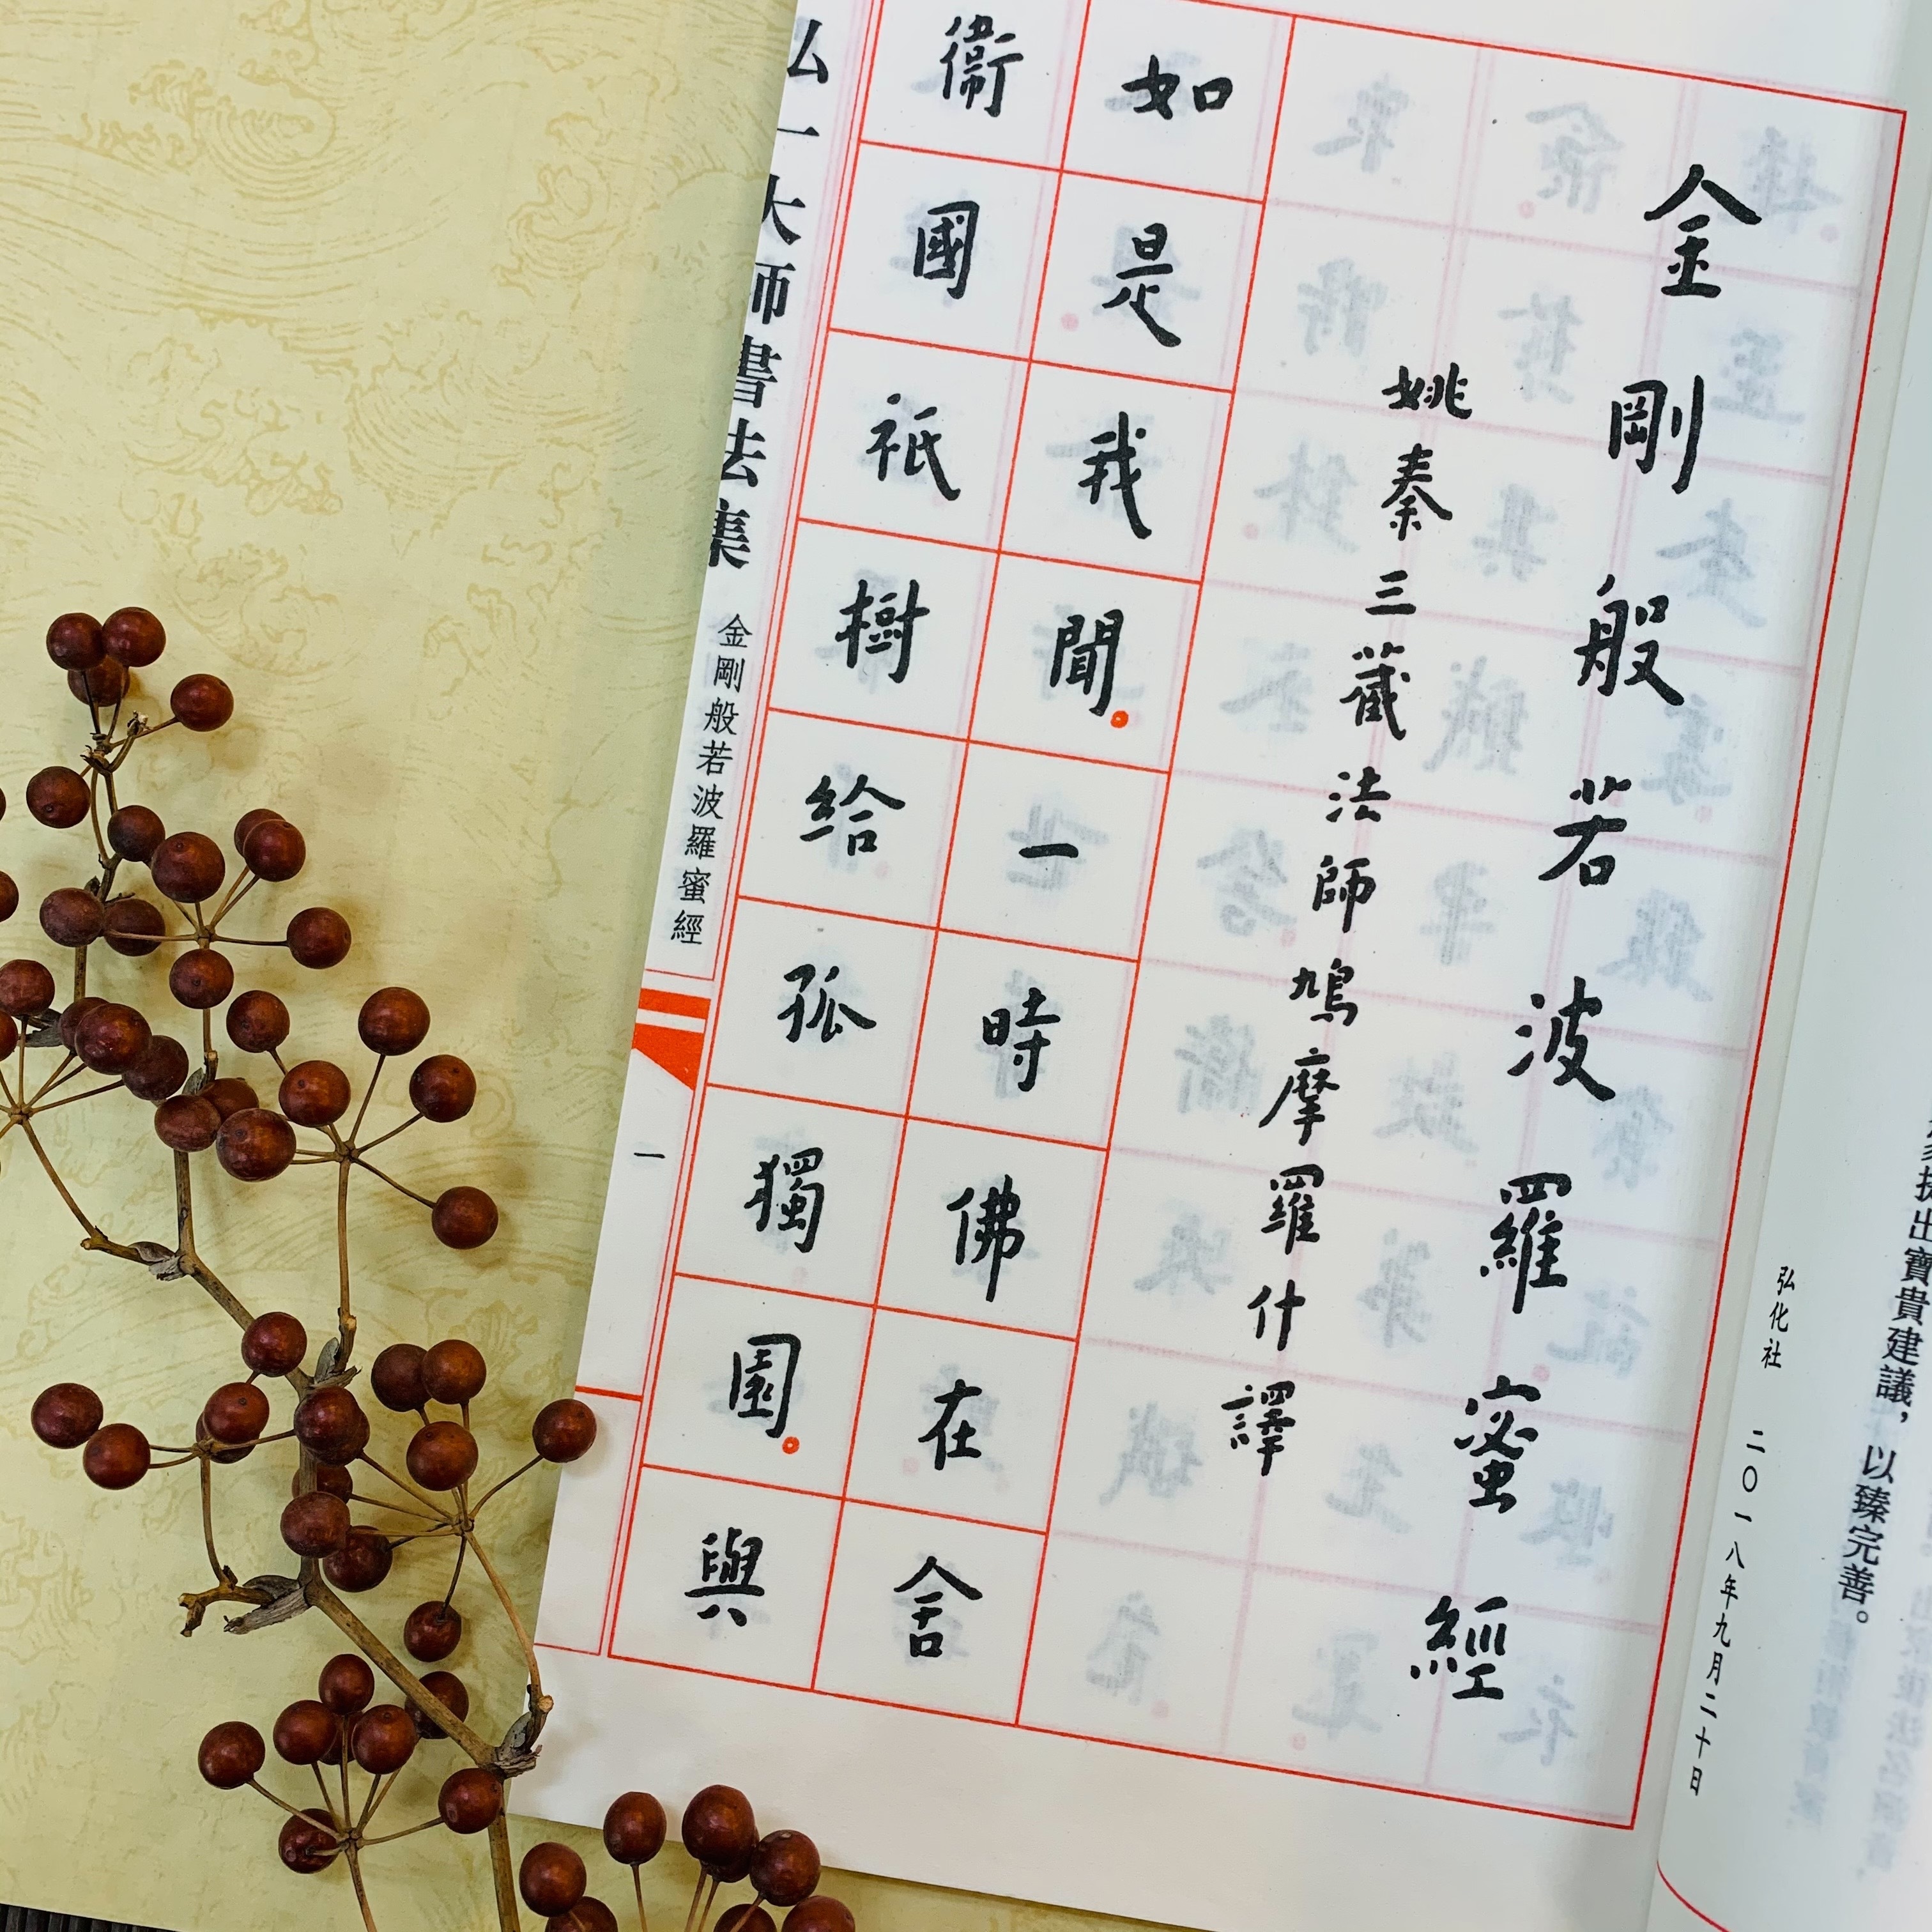 金剛般若波羅蜜經
姚秦三藏法師鳩摩羅什譯
如是我聞。一時佛在舍
衞國祇樹給孤獨園。與
弘一大師書法集
金剛般若波羅蜜經
一
提出寶貴建議，以臻完善。
弘化社 二〇一八年九月二十日